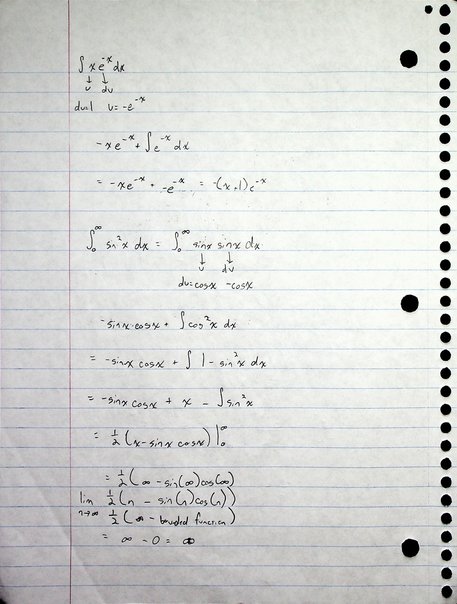 ∫ x e^-x dx
↓ ↓
u dv
du=1 v= -e^-x
-xe^-x + ∫ e^-x dx
= -xe^-x + -e^-x = -(x+1)e^-x
∫₀^∞ sin²x dx = ∫₀^∞ sinx sinx dx
↓ ↓
u dv
du=cosx -cosx
-sinx·cosx + ∫ cos²x dx
= -sinx cosx + ∫ 1 - sin²x dx
= -sinx cosx + x - ∫ sin²x
= 1/2 (x-sinx cosx) |₀^∞
= 1/2 (∞ - sin(∞)cos(∞))
lim n→∞ 1/2 (n - sin(n)cos(n))
1/2 (∞ - bounded function)
= ∞ - 0 = ∞